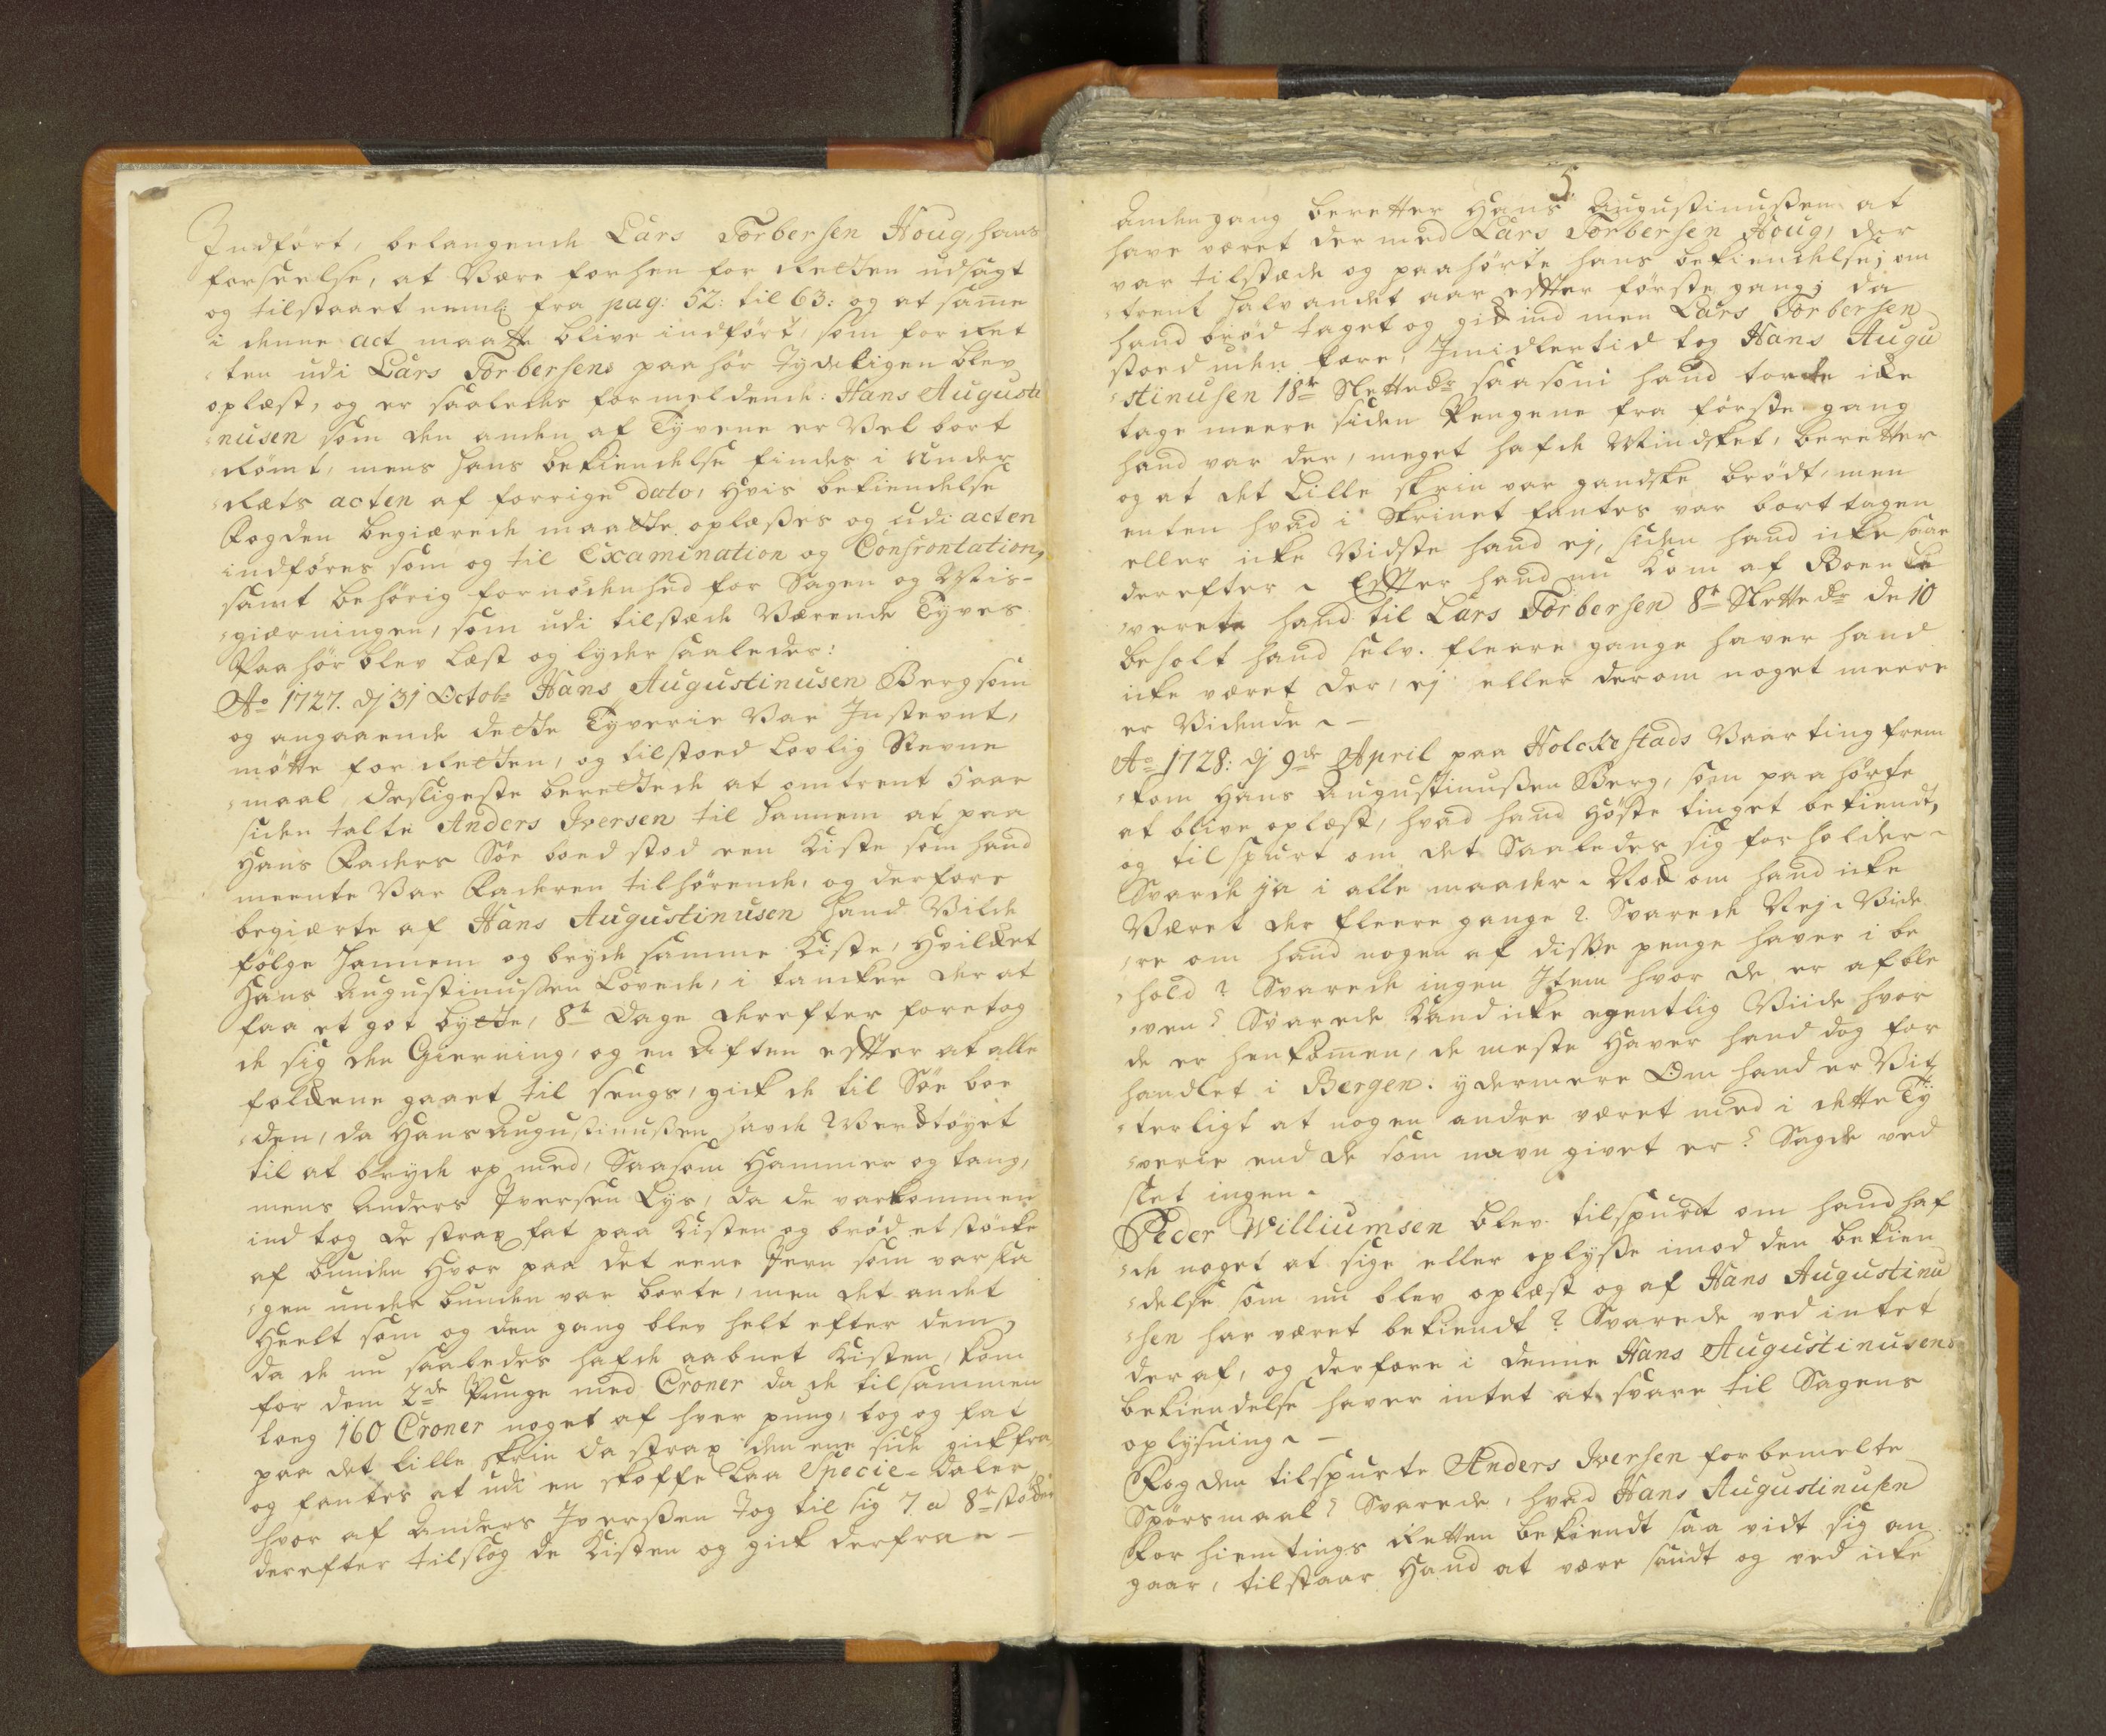 Indført, belangende Lars Torbersen Houg, hans
forseelse, at Være forhen for Retten udsagt
og tilstaaet neml: fra pag: 52: til 63: og at same
i denne act maatte blive indført, som for Ret
ten udi Lars Torbersens paahør Tydeligen blev
oplæst, og er saaledes formeldende: Hans Augusti
nusen som den anden af Tyvene er Vel bort
Rømt, mens hans bekiendelse findes i Under
Ræts acten af forrige dato, hvis bekiendelse
Fogden begiærede maatte oplæses og udi acten
indføres som og til Examination og Confrontation,
samt behørig fornødenhed for Sagen og Mis-
giærningen, som udi tilstæde Værende Tyves
Paahør blev læst og lyder saaledes:
Ao 1727. dj 31 Octobr Hans Augustinusen Berg som
og angaaende dette Tyverie Var Instevnt,
møtte for Retten, og tilstoed lovlig Stevne
maal, desligeste berettede at omtrent 5 aar
siden talte Anders Iversen til hannem at paa
Hans Faders Søe boed stod een Kiste som hand
meente Var Faderen tilhørende, og derfore
begiærte af Hans Augustinusen hand Vilde
følge hannem og bryde samme Kiste, hvilket
Hans Augustinussen Lovede, i tancker der at
faa et got bytte, 8te Dage derefter foretog
de sig den Gierning, og en Aften efter at alle
folkene gaaet til sengs, gick de til Søe boe
den, da Hans Augustinussen havde Werktøyet
til at bryde op med, Saasom Hammer og tang,
mens Anders Iversen Lys, da de var kommen
ind tog de strax fat paa Kisten og brød et støcke
af bunden hvor paa det eene Jern som var sla
gen under bunden var borte, men det andet
heelt som og den gang blev helt efter dem,
da de nu saaledes hafde aabnet Kisten, kom
for dem 2de Punge med Croner da de tilsammen
toeg 160 Croner noget af hver pung, tog og fat
paa det lille skrin da strax den ene side gick fra,
og fantes at udi en skoffe laa Specie-daler
hvor af Anders Iverssen tog til sig 7 a 8te støcker
derefter tilslog de Kisten og gick derfra –
5.
Anden gang beretter Hans Augustinussen at
have været der med Lars Torbersen Houg, der
var tilstæde og paahørte hans bekiendelse; om
trent halvandet aar efter første gang; da
hand brød taget og gick ind men Lars Torbersen
stoed uden fore, Imidlertid tog Hans Augu
stinusen 18te Slettedr saasom hand torde icke
tage meere siden Pengene fra første gang
hand var der, meget hafde Mindsket, beretter
og at det Lille skrin var gandske brødt, men
enten hvad i Skrinet fantes var bort tagen
eller icke Vidste hand ej, siden hand icke saae
derefter. Efter hand nu kom af Boen le
verete hand til Lars Torbersen 8te Slettedr de 10
beholt hand selv. fleere gange haver hand
icke været der, ej eller derom noget meere
er Vidende –
Ao 1728: dj 9de April paa Holckestads Vaarting frem
kom Hans Augustinussen Berg, som paahørte
at blive oplæst, hvad hand høste tinget bekiendt,
og tilspurt om det Saaledes sig forholder
Svarede ja i alle maader. Nock om hand icke
Været der fleere gange? Svarede Nej. Vide
re om hand nogen af disse penge haver i be
hold? Svarede ingen Item hvor de er afble
ven? Svarede Kand icke egentlig Viide hvor
de er henkomen, de meste haver hand dog for
handlet i Bergen. ydermere Om hand er Vit
terligt at nogen andre været med i dette Ty
verie end de som navn givet er? Sagde ved
slet ingen.
Peder Williumsen blev tilspurdt om hand haf
de noget at sige eller oplysse imod den bekien
delse som nu blev oplæst og af Hans Augustinu
sen har været bekiendt? Svarede ved intet
der af, og derfore i denne Hans Augustinusens
bekiendelse haver intet at svare til Sagens
oplysning –
Fogden tilspurte Anders Iversen forbemelte
Spørsmaal? Svarede, hvad Hans Augustinusen
for hiemtings Retten bekiendt saa vidt sig an
gaar, tilstaar Hand at være sandt og ved icke